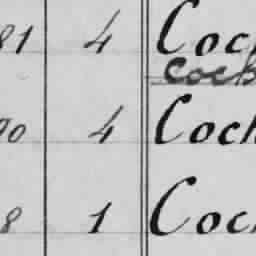 81 4 Coc
Cock
90 4 Coc
8 1 Coc